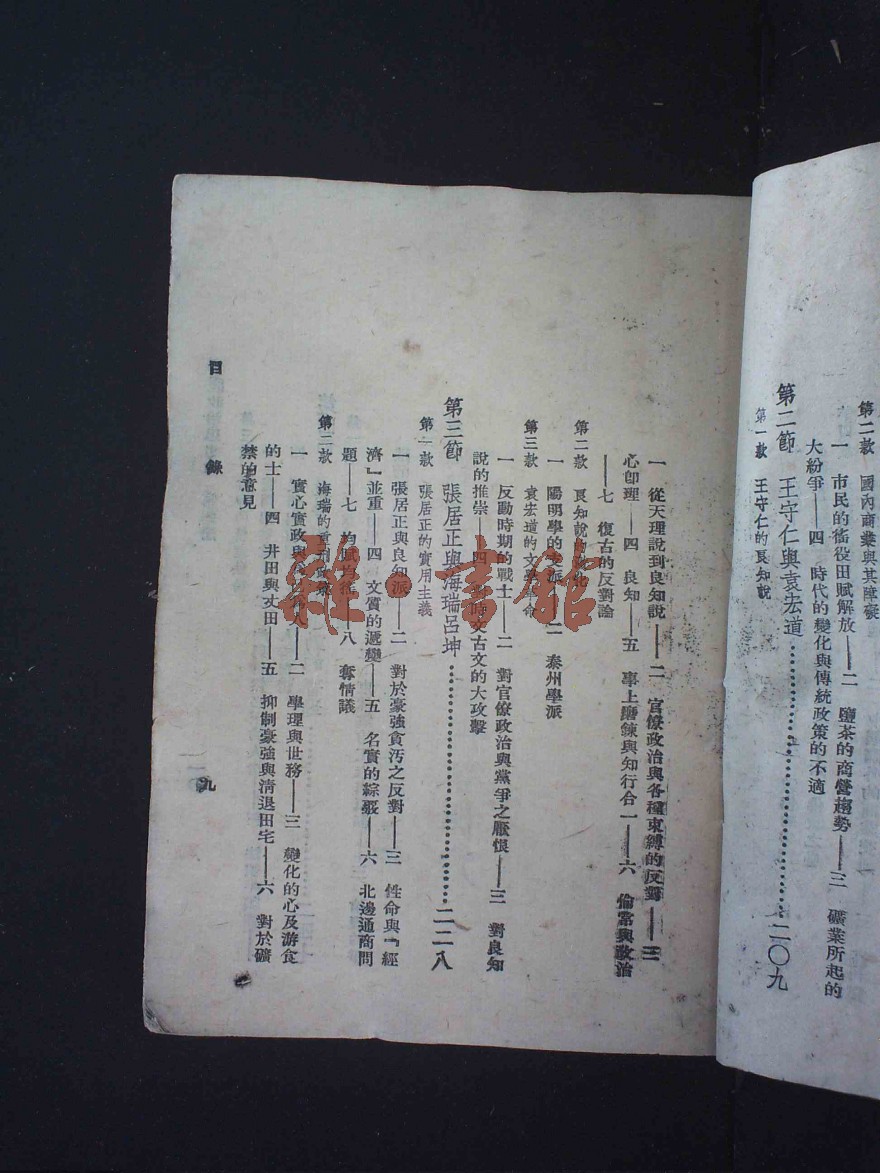 第二款 國內商業與其障礙
一 市民的徭役田賦解放——二 鹽茶的商營趨勢——三 礦業所起的
大紛爭——四 時代的變化與傳統政策的不適
第二節 王守仁與袁宏道…………二〇九
第一款 王守仁的良知說
一 從天理說到良知說——二 官僚政治與各種束縛的反對——三
心卽理——四 良知——五 事上磨鍊與知行合一——六 倫常與政治
——七 復古的反對論
第二款 良知說的
一 陽明學的支派——二 泰州學派
第三款 袁宏道的文學革命
一 反動時期的戰士——二 對官僚政治與黨爭之厭恨——三 對良知
說的推崇——四 對時文古文的大攻擊
第三節 張居正與海瑞呂坤…………二二八
第一款 張居正的實用主義
一 張居正與良知派——二 對於豪強貪污之反對——三 性命與「經
濟」並重——四 文質的遞變——五 名實的綜覈——六 北邊通商問
題——七 均賦 八 奪情議
第二款 海瑞的重刑
一 實心實政與 人——二 學理與世務——三 變化的心及游食
的士——四 井田與丈田——五 抑制豪強與淸退田宅——六 對於礦
禁的意見
目錄
九
雜·書館